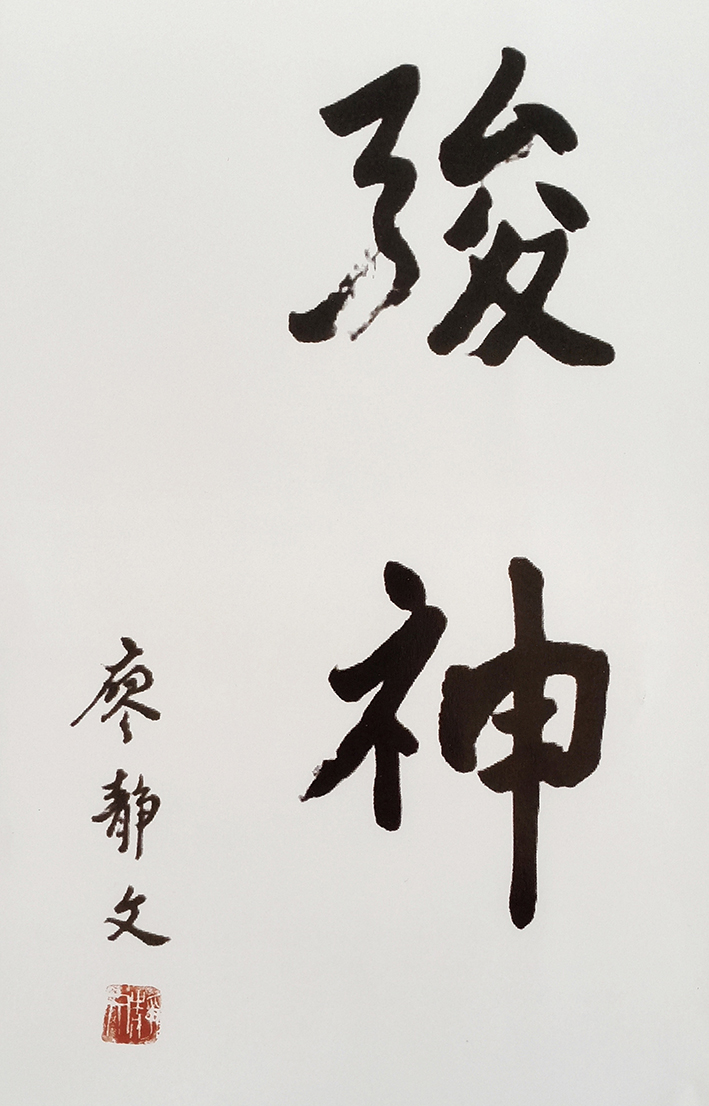 骏神
廖静文